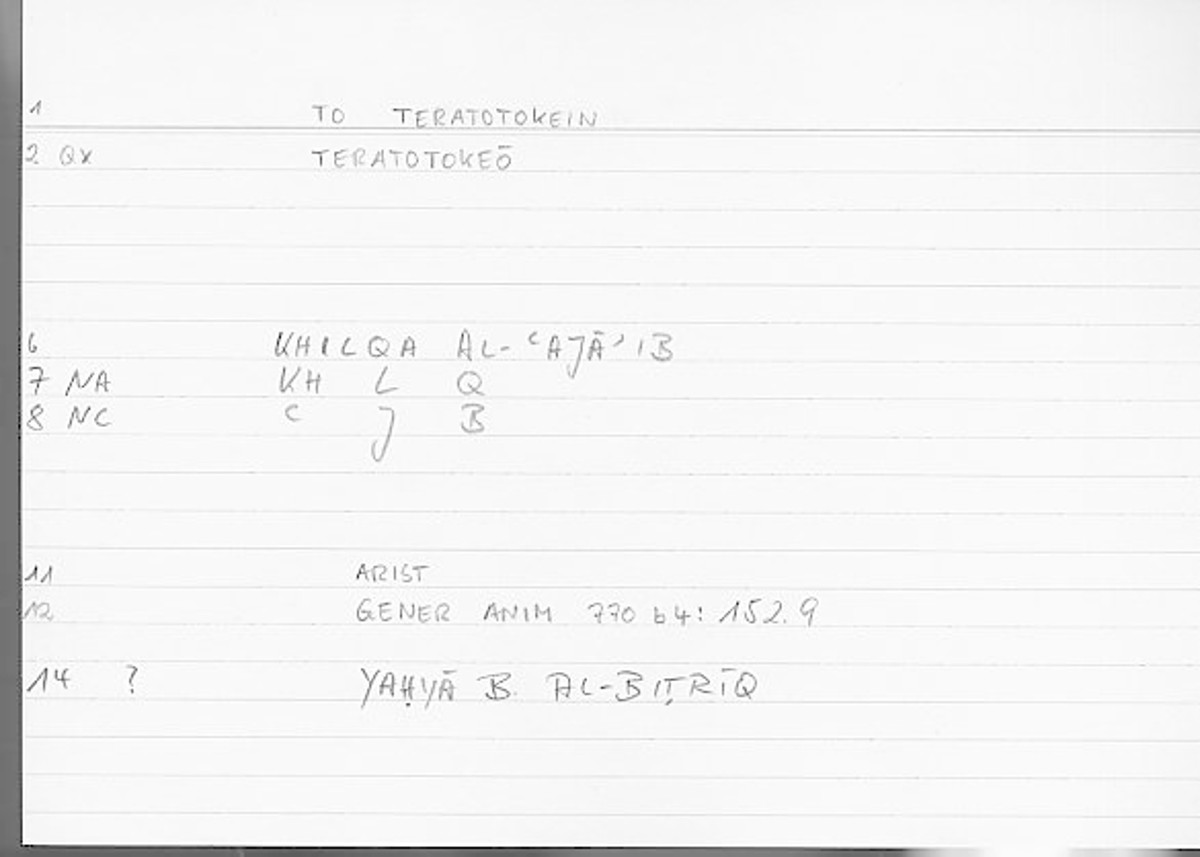 1 TO TERATOTOKEIN
2 QX TERATOTOKEŌ
6 KHILQA AL-ʿAJĀʾIB
7 NA KH L Q
8 NC ʿ J B
11 ARIST
12 GENER ANIM 770 b4: 152.9
14 ? YAḤYĀ B. AL-BIṬRĪQ